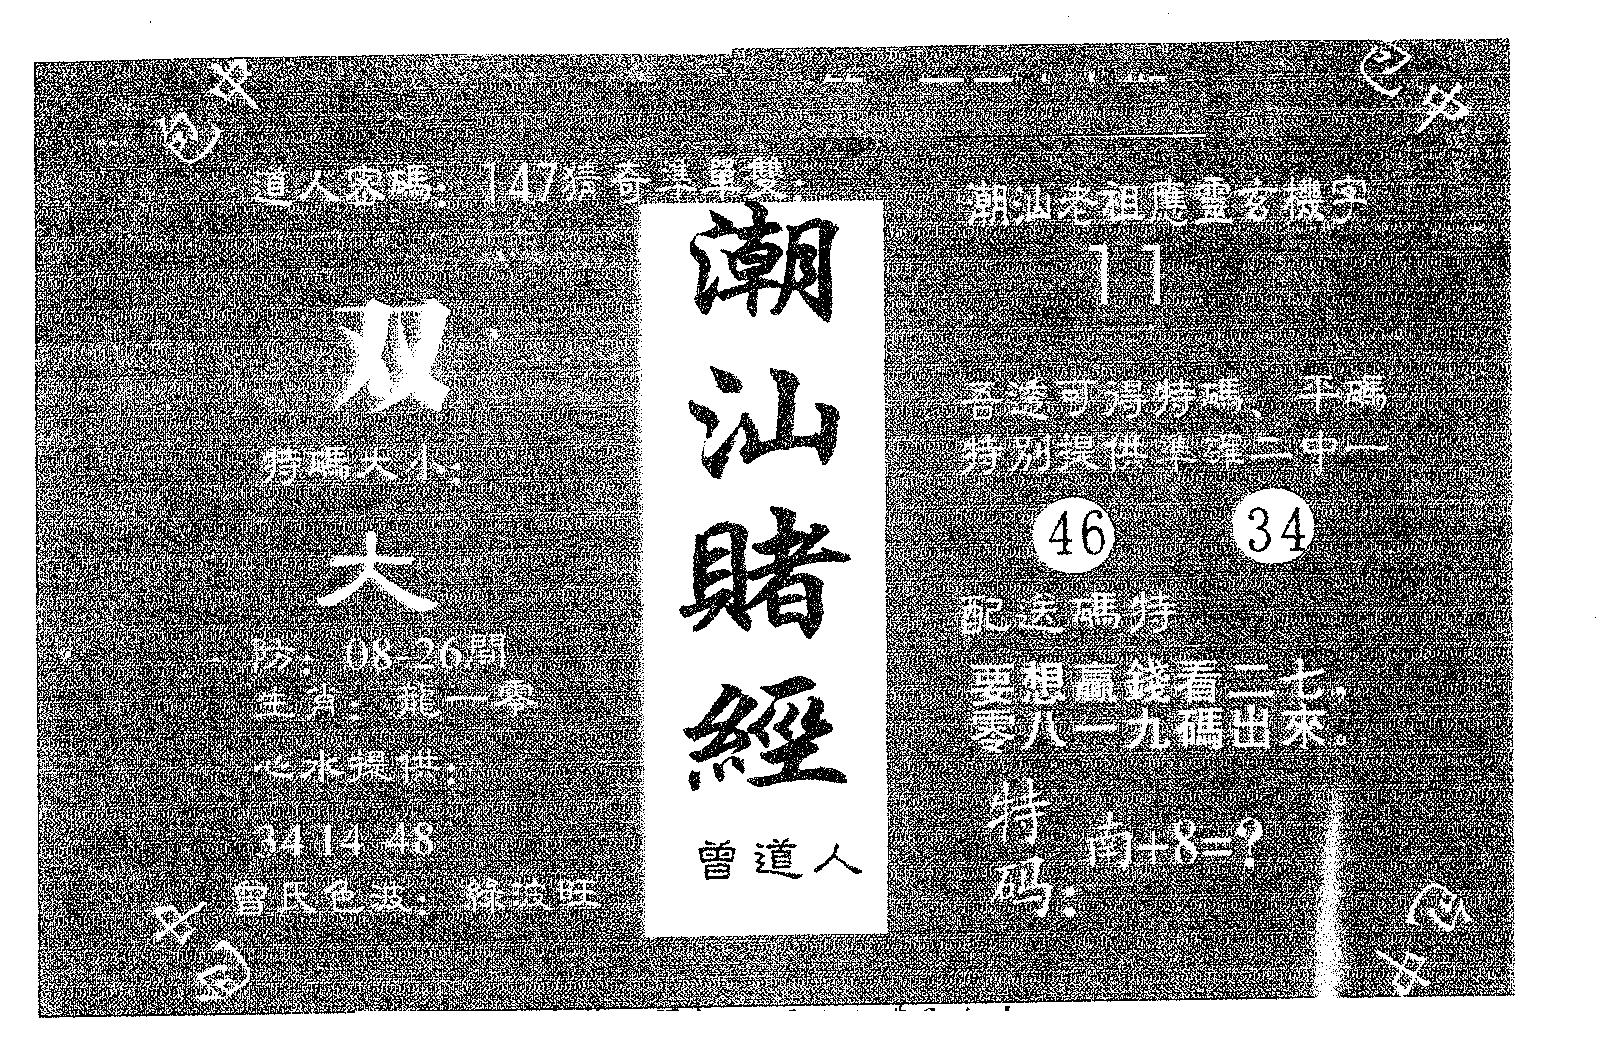 道人密碼：147猜奇洪單雙：
双
特碼大小：
大
防：08-26開
金肖：龍一零
心水提供：
34 14 48
曾氏色波：綠波旺
潮汕賭經
曾道人
潮汕老祖應靈玄機字
11
吾透可得特碼、平碼
特別提供準單二中一
46 34
配送碼特
要想贏錢看二七，
零八一九碼出來。
特码：南+8=?